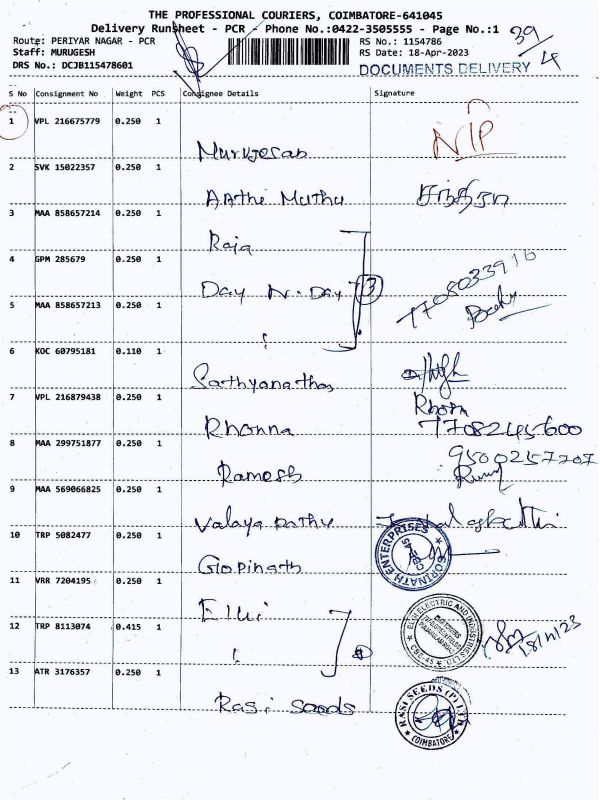 THE PROFESSIONAL COURIERS, COIMBATORE-641045
Delivery Runsheet - PCR - Phone No.:0422-3505555 - Page No.:1
39/4
Route: PERIYAR NAGAR - PCR
RS No.: 1154786
Staff: MURUGESH
RS Date: 18-Apr-2023
DRS No.: DCJB115478601
DOCUMENTS DELIVERY
S No Consignment No Weight PCS Consignee Details Signature
1 VPL 216675779 0.250 1
Murugesan NIP
2 SVK 15022357 0.250 1
Aathi Muthu
3 MAA 858657214 0.250 1
Raja
4 GPM 285679 0.250 1
Day N. Day 3 7708033916
5 MAA 858657213 0.250 1
6 KOC 60795181 0.110 1
Sathyanathan
7 VPL 216879438 0.250 1
Rhonna 7708245600
8 MAA 299751877 0.250 1
Ramesh 9500257207
9 MAA 569066825 0.250 1
Valaya pathy
10 TRP 5082477 0.250 1
Gopinath GOPINATH ENTERPRISES CBE-45
11 VRR 7204195 0.250 1
Elgi
12 TRP 8113074 0.415 1
ELGI ELECTRIC AND INDUSTRIES LTD CBE-45
13 ATR 3176357 0.250 1
Rasi seeds RASI SEEDS (P) LTD. COIMBATORE